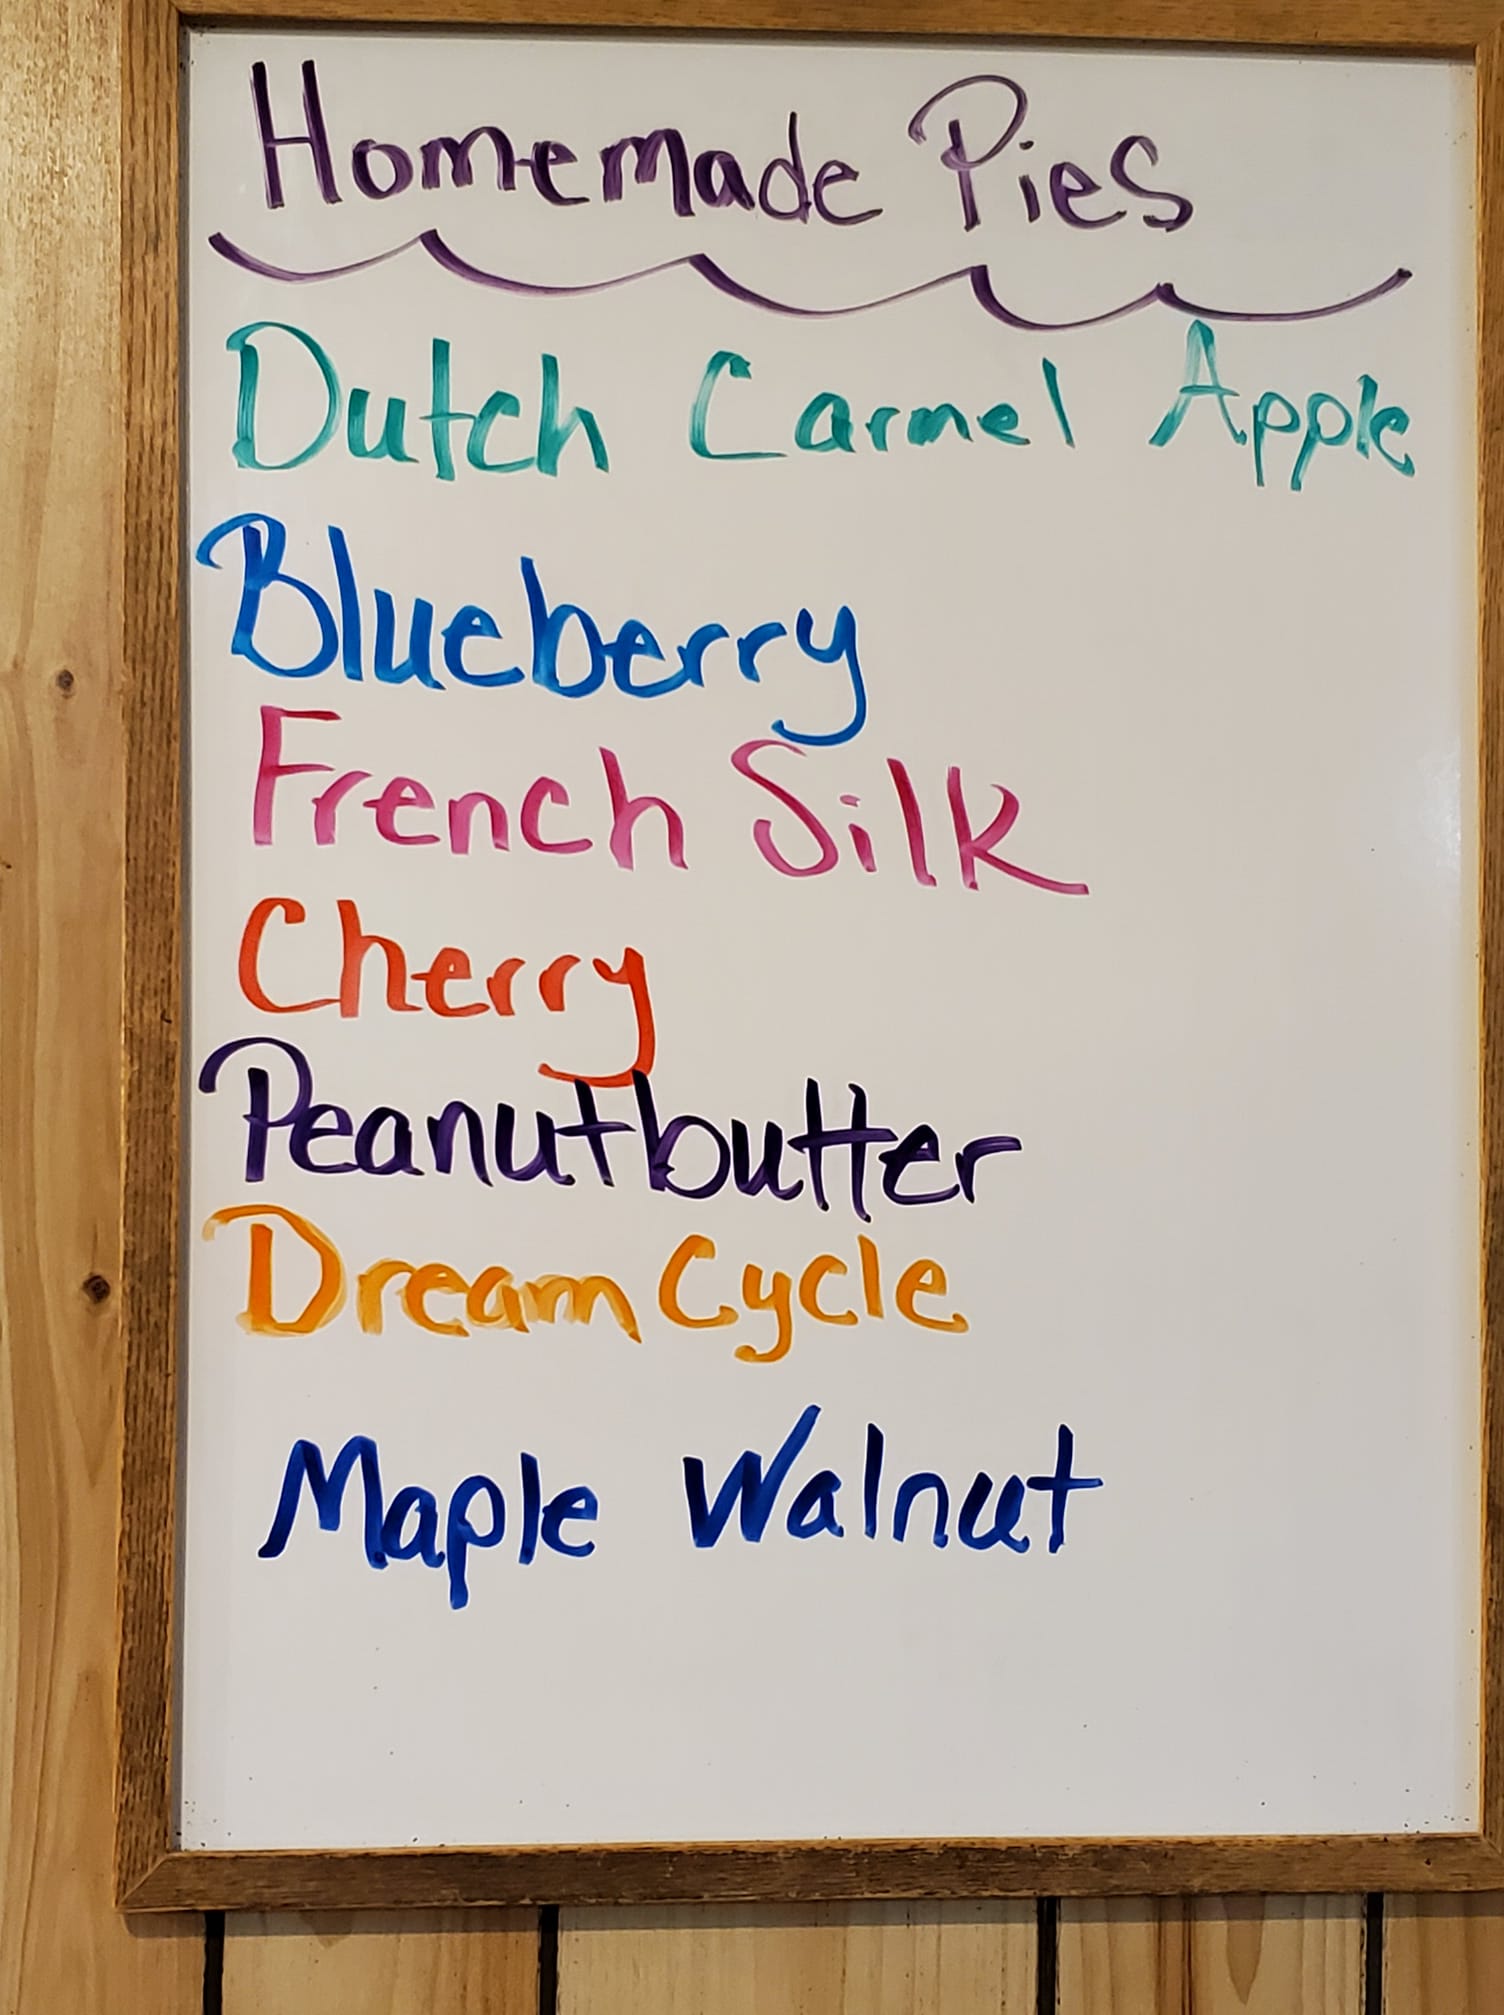 Homemade Pies
Dutch Carmel Apple
Blueberry
French Silk
Cherry
Peanutbutter
Dream Cycle
Maple Walnut